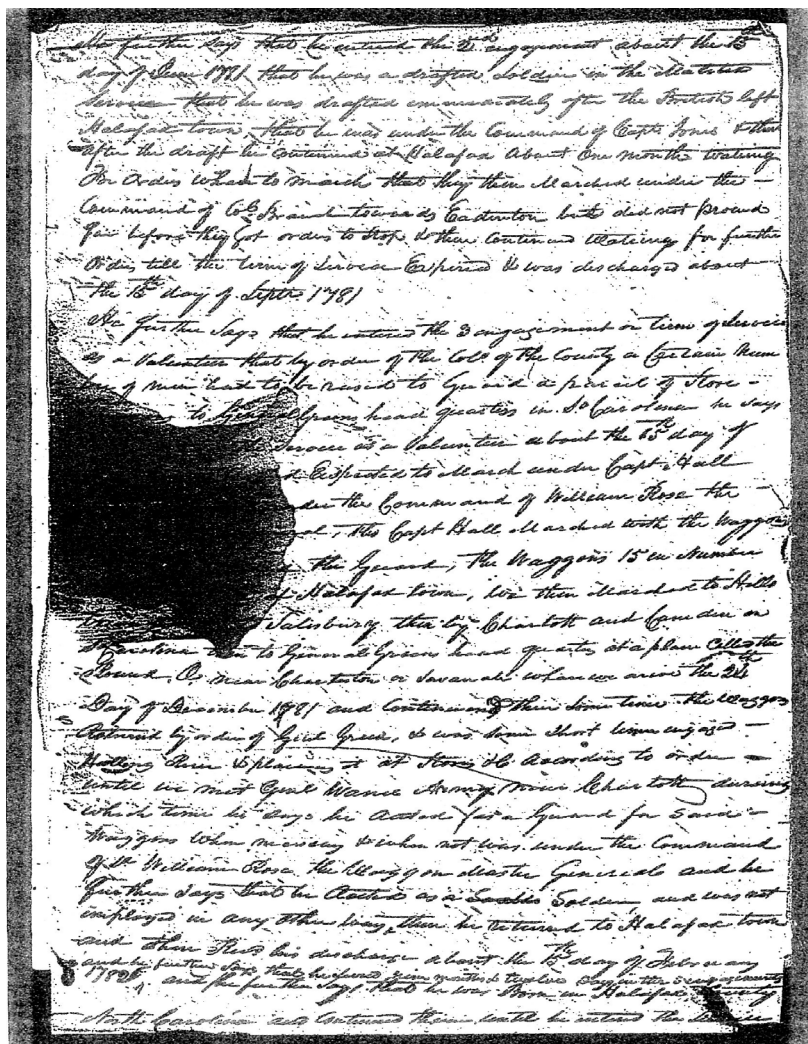 He further says that he entered the 2nd engagement about the 15th
day of June 1781 that he was a drafted Soldier in the Malitia
Service that he was drafted immediately after the British left
Halafax town, that he was under the Command of Capt. Jones & that
after the draft he continued at Halafax about one month waiting
for orders whare to march that they then Marched under the
Command of Col. towards Eadenton but did not proceed
far before they Got orders to stop & then Continued Waiting for further
orders till the term of Service Expired & was discharged about
the 15th day of Septr 1781
He further Says that he entered the 3 engagement or term of Service
as a Valunteer that by order of the Colo of the County a Certain Num
ber of men had to be raised to Guard a parcel of Store
to General Greens head quarters in So Carolina he says
Service as a Valunteer about the 15th day of
d Expected to March under Capt. Hall
der the Command of William Rose the
al, the Capt Hall Marched with the Waggons
the Guard, the Waggons 15 in Number
Halafax town, We then Marched to Hills
Salesbury then by Charlott and Camden in
Carolina then to General Greens head quarters at a place Called the
Round O. near Charleston or Savanah whare we arive the 24th
Day of December 1781 and Continued their Some time the Waggons
by order of Genl Green, & was Some Short time engaged
Halling & placing it at Stono &c According to order
until we met Genl Wanes Army near Charlott during
which time he Says he Acted as a Guard for Said
Waggons when necessary & when not was under the Command
of William Rose the Waggon Master General and he
further Says that he Acted as a Soldier and was not
employed in any other way, then he returned to Halafax town
and their Recd his discharge about the 15th day of Februrary
1782 and he further Says that he served nine months & twelve Days in the 3 engagements
and he further Says that he was Born in Halafax County
North Carolina and Continued there until he entered the Service